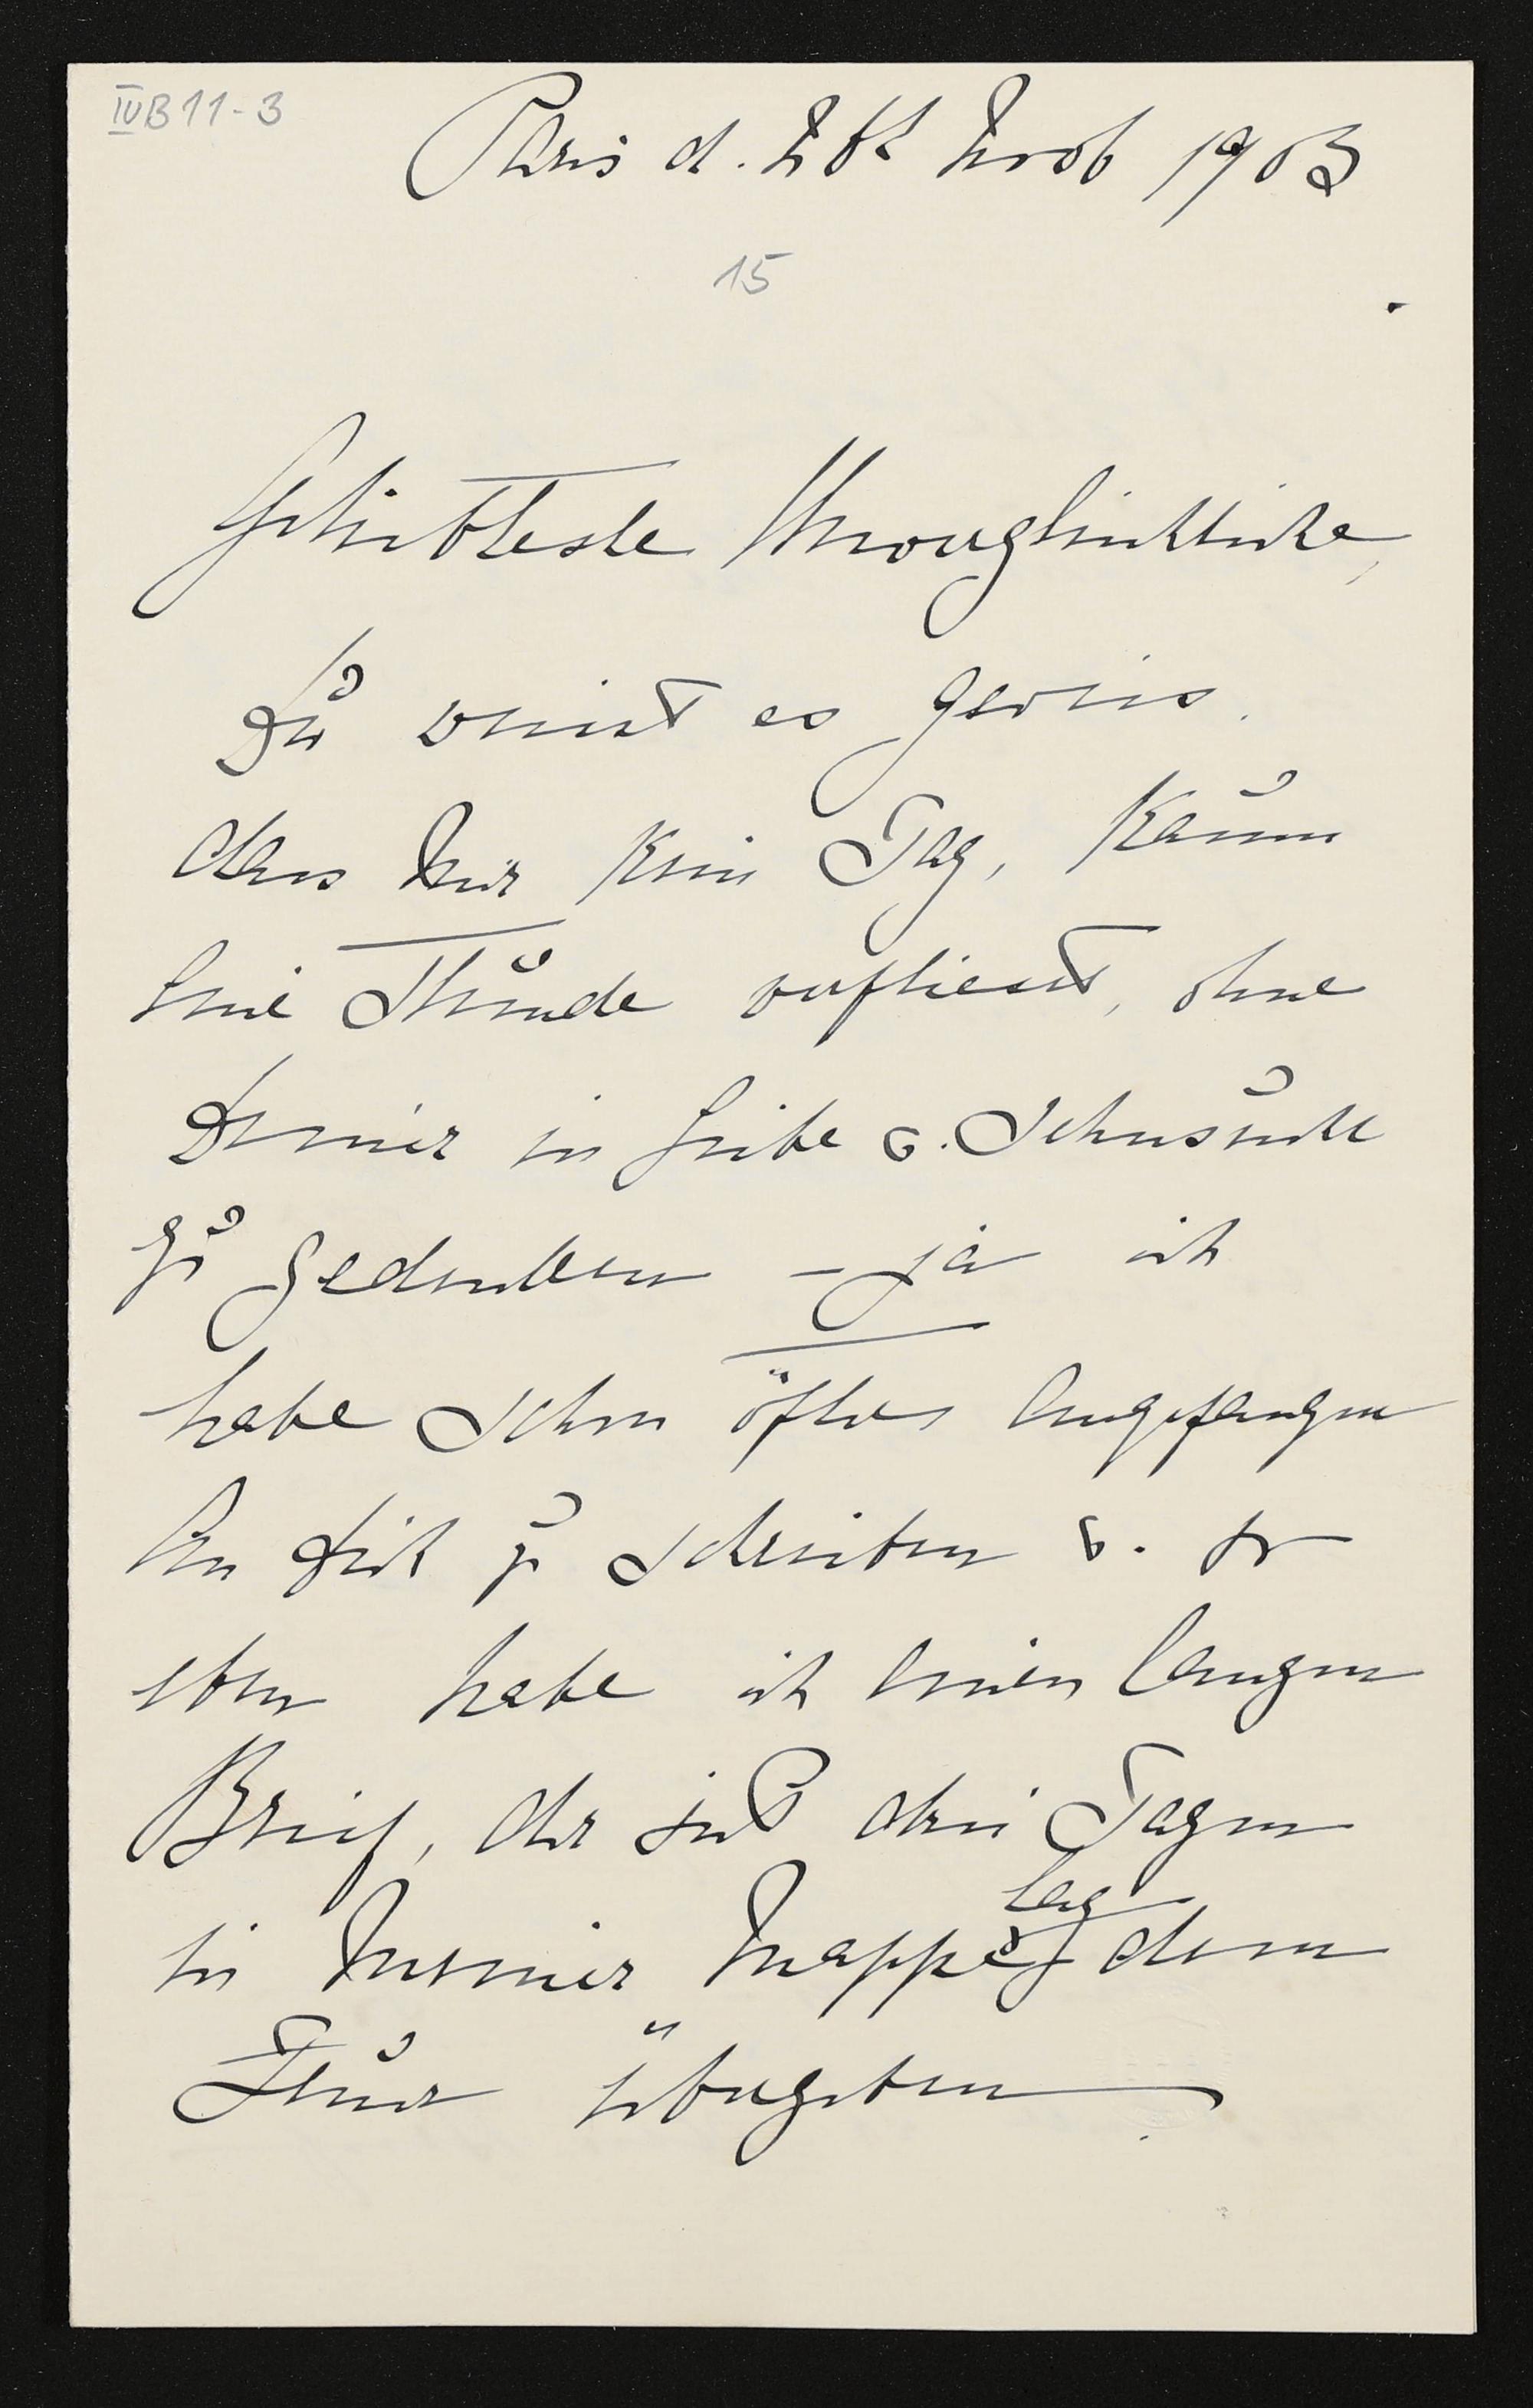 IVB11-3
Paris d. Nov 1903
15
Geliebteste Unvergleichliche,
Du weisst es gewiss.
dass mir kein Tag, kaum
eine Stunde verfliesst, ohne
Deiner in Liebe u. Sehnsucht
zu gedenken – ja ich
habe schon öfters angefangen
an Dich zu schreiben u. so
eben habe ich einen langen
Brief, der seit drei Tagen
in meiner Mappe lag dem
Feuer übergeben